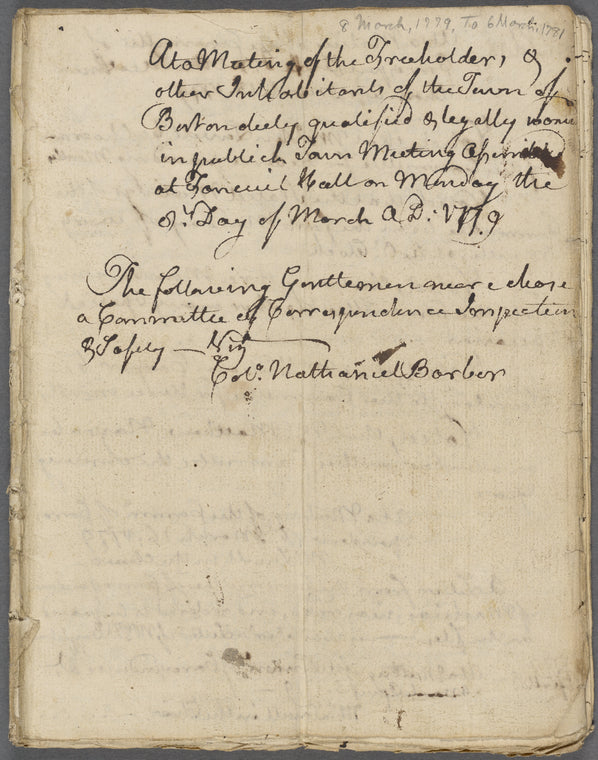 8 March, 1779, To 6 March, 1781
At a Meeting of the Freeholders &
other Inhabitants of the Town of
Boston duely qualified & legally
in publick Town Meeting
at Faneuil Hall on Monday the
8th. Day of March A D: 1779
The following Gentlemen were chose
a Committee of Correspondence Inspection
& Safety — Viz
Colo. Nathaniel Barber